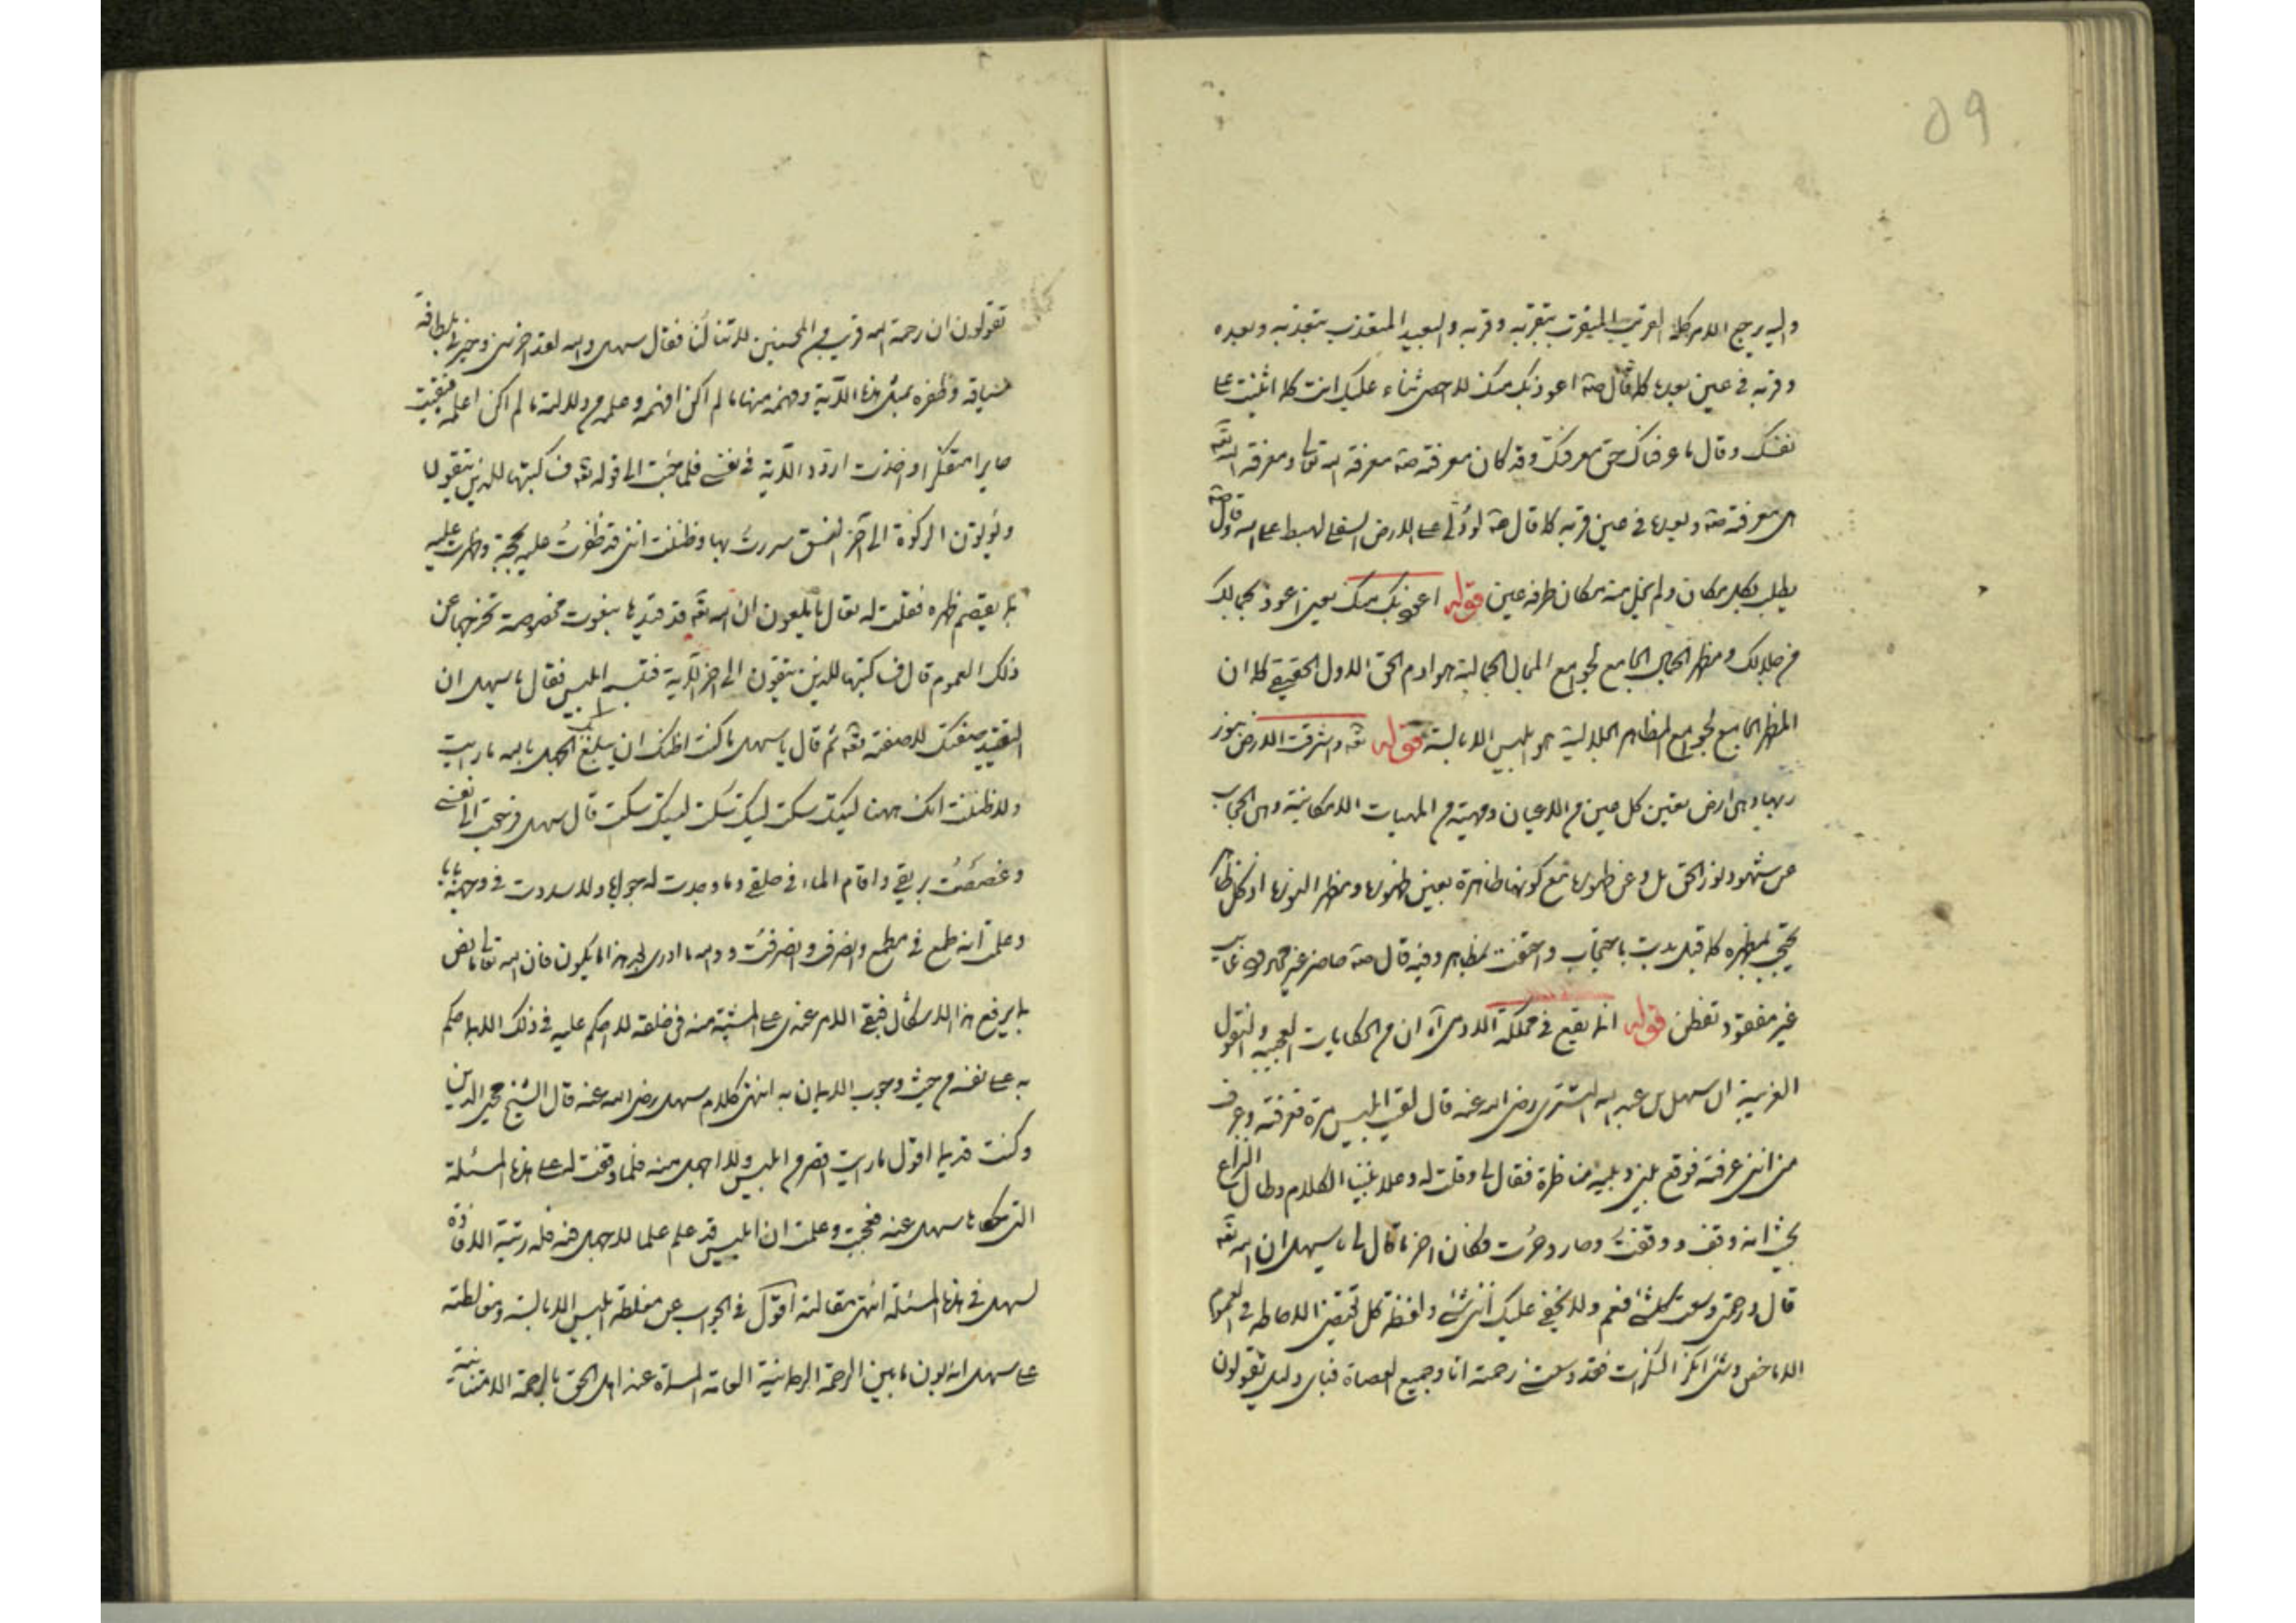 ٥٩
واليه يرجع الامر كله القريب المتقرب بتقربه وقربه والبعيد المتبعد ببعده
وقربه في عين بعده كما قال صه اعوذ بك منك لا احصي ثناء عليك انت كما اثنيت على
نفسك وقال ما عرفناك حق معرفتك وقد كان معرفته صه معرفة الله تعالى ومعرفة الله تعه
هي معرفته صه وبعده في عين قربه كما قال صه لو دلي على الارض السفلى لهبط على الله وقال صه
بكل مكان ولم يخل منه مكان طرفة عين قوله اعوذ بك منك يعني اعوذ بجمالك
من جلالك ومظهر الجمال الجامع لجوامع الجمالية هو ادم الحق الاول الحقيقي كما ان
المظهر الجامع لجوامع المظاهر الجلالية هو ابليس الابالسة قوله تعه واشرقت الارض بنور
ربها وهي ارض تعين كل عين من الاعيان ومهية من المهيات الامكانية وهي الحجاب
عن شهود نور الحق بل وعن ظهورها مع كونها ظاهرة بعين ظهورها ومظهر النورها اذ كل ظاهر
يحتجب بمظهره كما قيل بدت باحتجاب واختفت بمظاهر وفيه قال صه حاضر غير محدود وغايب
غير مفقود تفطن قوله انه يقع في مملكة الاوى آه ان من الحكايات العجيبة والنقول
الغريبة ان سهل بن عبد الله التستري رضي الله عنه قال لقيت ابليس مرة فعرفته وعرف
مني انني عرفته فوقع بيني وبينه مناظرة فقال لي وقلت له وعلا بيننا الكلام وطال النزاع
بحيث انه وقف ووقفت وحار وحرت فكان اخر ما قال لي يا سهل ان الله تعه
قال ورحمتي وسعت كل شئ فعم ولا يخفى عليك انني شئ ولفظة كل تقتضي الاحاطة في العموم
الا ما خص وشئ انكر النكرات فقد وسعتني رحمته انا وجميع العصاة فباي دليل تقولون
تقولون ان رحمة الله قريب من المحسنين لا تنالنا فقال سهل والله لقد اخرسني وحيرني بلطافة
سياقه وظفره بمثل هذه الآية وفهمه منها ما لم اكن افهمه وعلمه من دلالته ما لم اكن اعلمه فبقيت
حايرا متفكرا واخذت اردد الآية في نفسي فلما جئت الى قوله تعه فساكتبها للذين يتقون
ويؤتون الزكوة الى آخر النسق سررت بها وظننت انني قد ظفرت عليه بحجة وظهرت عليه
بما يقصم ظهره فقلت له تعال يا ملعون ان الله تعه قد قيدها بنعوت مخصوصة تخرجها عن
ذلك العموم قال فساكتبها للذين يتقون الى اخر الآية فتبسم ابليس فقال يا سهل ان
التقييد صفتك لا صفته تعه ثم قال يا سهل ما كنت اظنك ان يبلغ بك الجهل بالله ما رايت
ولا ظننت انك ههنا ليتك سكت ليتك سكت ليتك سكت قال سهل فرجعت الى نفسي
وغصصت بريقي واقام الماء في حلقي وما وجدت له جوابا ولا سددت في وجهه بابا
وعلمت انه طمع في مطمع وانصرف وانصرفت ووالله ما ادري بعد هذا ما يكون فان الله تعالى ما نص
بما يرفع هذا الاشكال فبقي الامر عندي على المشية منه في خلقه لا احكم عليه في ذلك الا بما حكم
به على نفسه من حيث وجوب الايمان به انتهى كلام سهل رضي الله عنه قال الشيخ محي الدين
وكنت قديما اقول ما رايت اقصر من ابليس ولا اجهل منه فلما وقفت له على هذه المسئلة
التي حكاها سهل عنه فعجبت وعلمت ان ابليس قد علم علما لا جهل فيه فله رتبة الافادة
لسهل في هذه المسئلة انتهى مقالته اقول في الجواب عن مغلطة ابليس الابالسة ومغالطته
على سهل انه بون ما بين الرحمة الرحمانية العامة المسماة عند اهل الحق بالرحمة الامتنانية